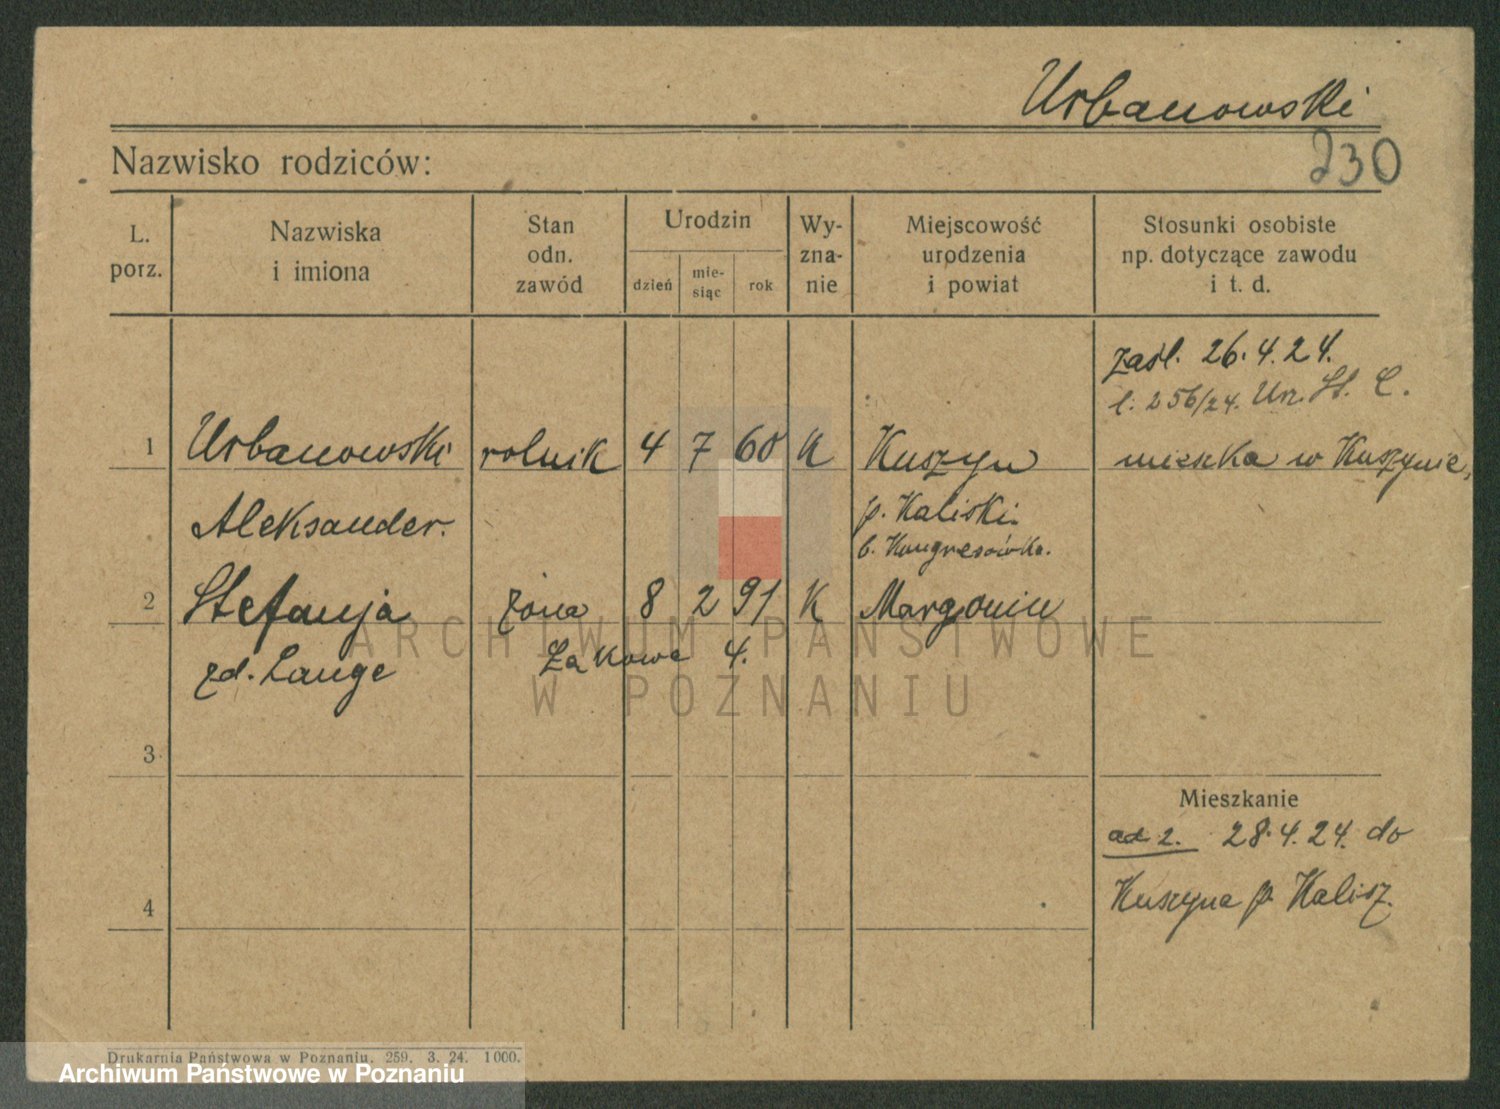 Urbanowski
230
Nazwisko rodziców:
L. porz.
Nazwiska i imiona
Stan odn. zawód
Urodzin
dzień
mie-siąc
rok
Wy-zna-nie
Miejscowość urodzenia i powiat
Stosunki osobiste np. dotyczące zawodu i t. d.
zaśl. 26.4.24.
l. 256/24. Urz. St. C.
1 Urbanowski rolnik 4 7 60 K Kuszyn mieszka w Kuszynie,
Aleksander. p. Kaliski.
b. Kongresówka.
2 Stefanja żona 8 2 91 K Margonin
zd. Lange Łąkowa 4.
3
Mieszkanie
ad 2. 28.4.24. do
4 Kuszyna p. Kalisz.
ARCHIWUM PAŃSTWOWE
W POZNANIU
Drukarnia Państwowa w Poznaniu. 259. 3. 24. 1000.
Archiwum Państwowe w Poznaniu